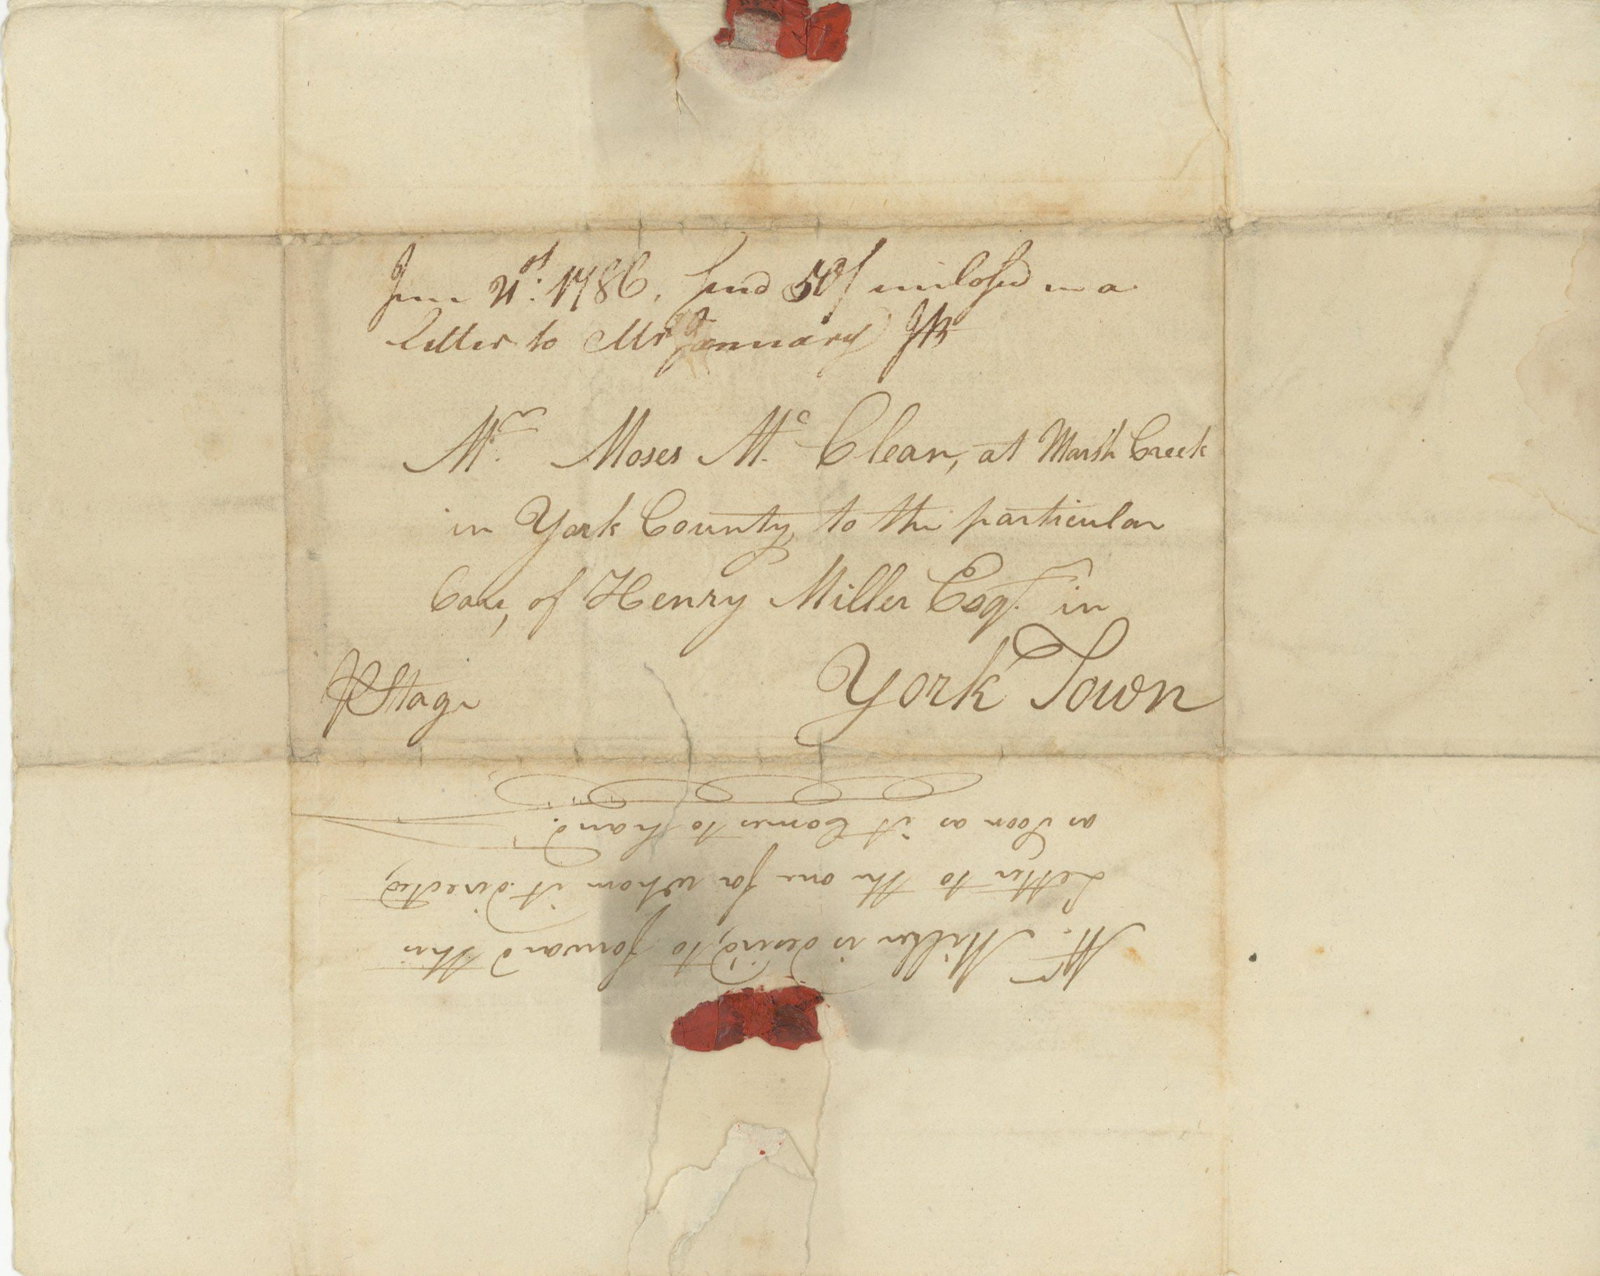 June 21st: 1786. Send 50/ inclosed in a
letter to Mr January
Mr. Moses Mc. Clean, at Marsh Creek
in York County, to the particular
Care, of Henry Miller Esqr. in
York Town
Stage
Mr. Miller is desired, to forward this
Letter to the one for whom it directed,
as Soon as it Comes to hand.